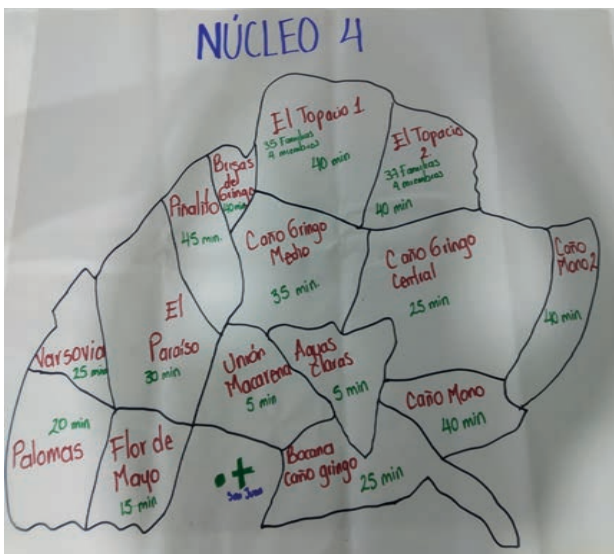 NÚCLEO 4
El Topacio 1
35 Familias
4 miembros
40 min
El Topacio
2
37 Familias
4 miembros
40 min
Brisas
del
Gringo
40 min
Piñalito
45 min.
Caño Gringo
Medio
35 min.
Caño Gringo
Central
25 min
Caño
Mono 2
40 min
Varsovia
25 min
El
Paraíso
30 min
Unión
Macarena
5 min
Aguas
Claras
5 min
Caño Mono
40 min
20 min
Palomas
Flor de
Mayo
15 min
San Juan
Bocana
Caño gringo
25 min